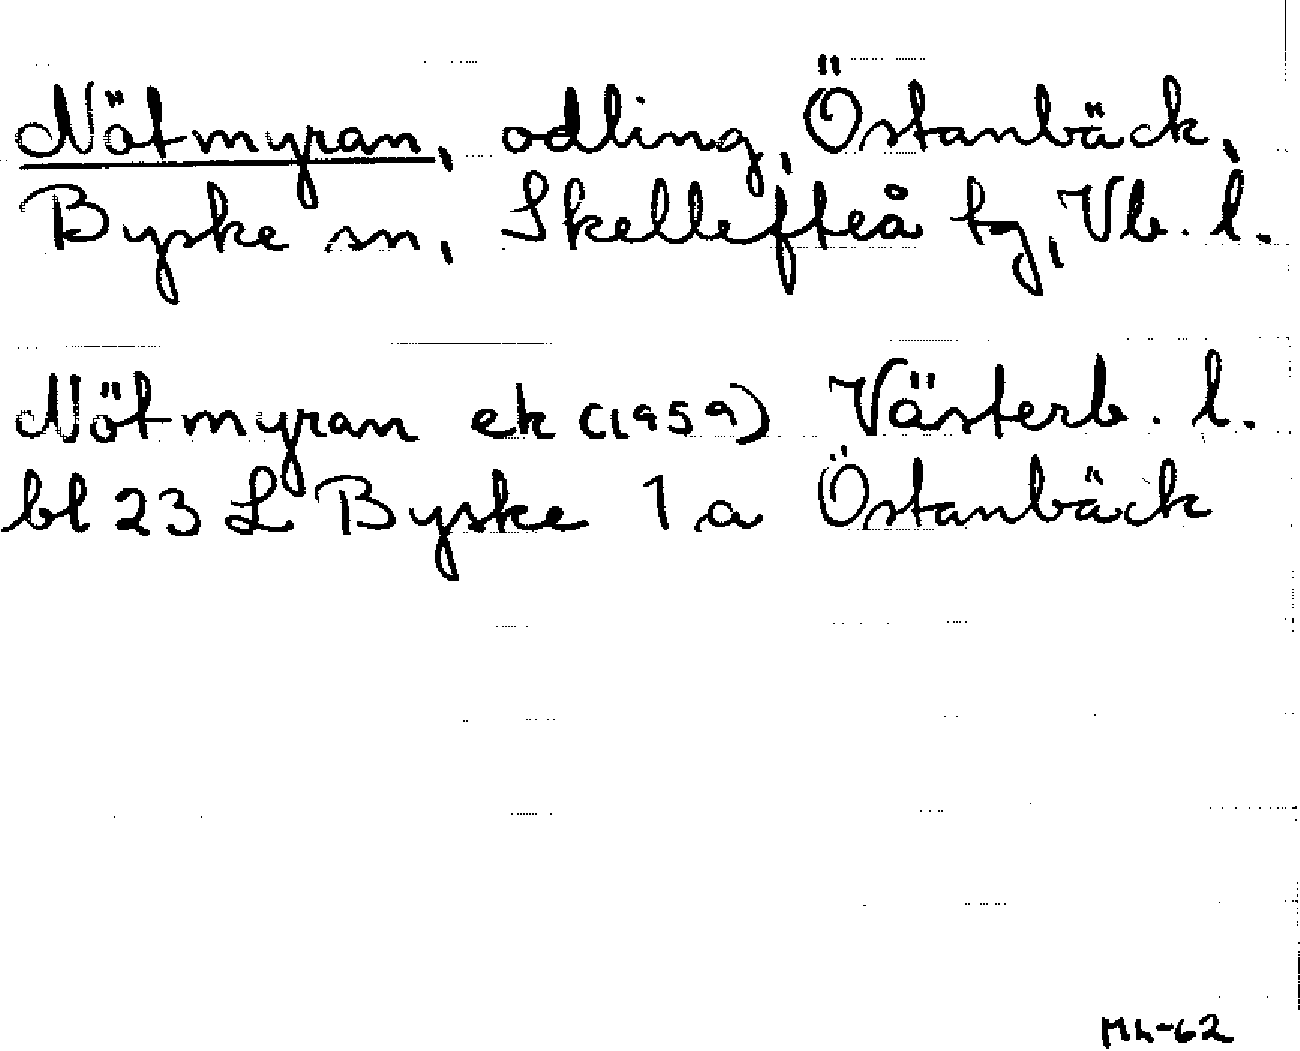 Nötmyran, odling, Östanbäck,
Byske sn, Skellefteå tg, Vb. l.
Nötmyran ek (1959) Västerb. l.
bl 23 L Byske 1 a Östanbäck
ML-62